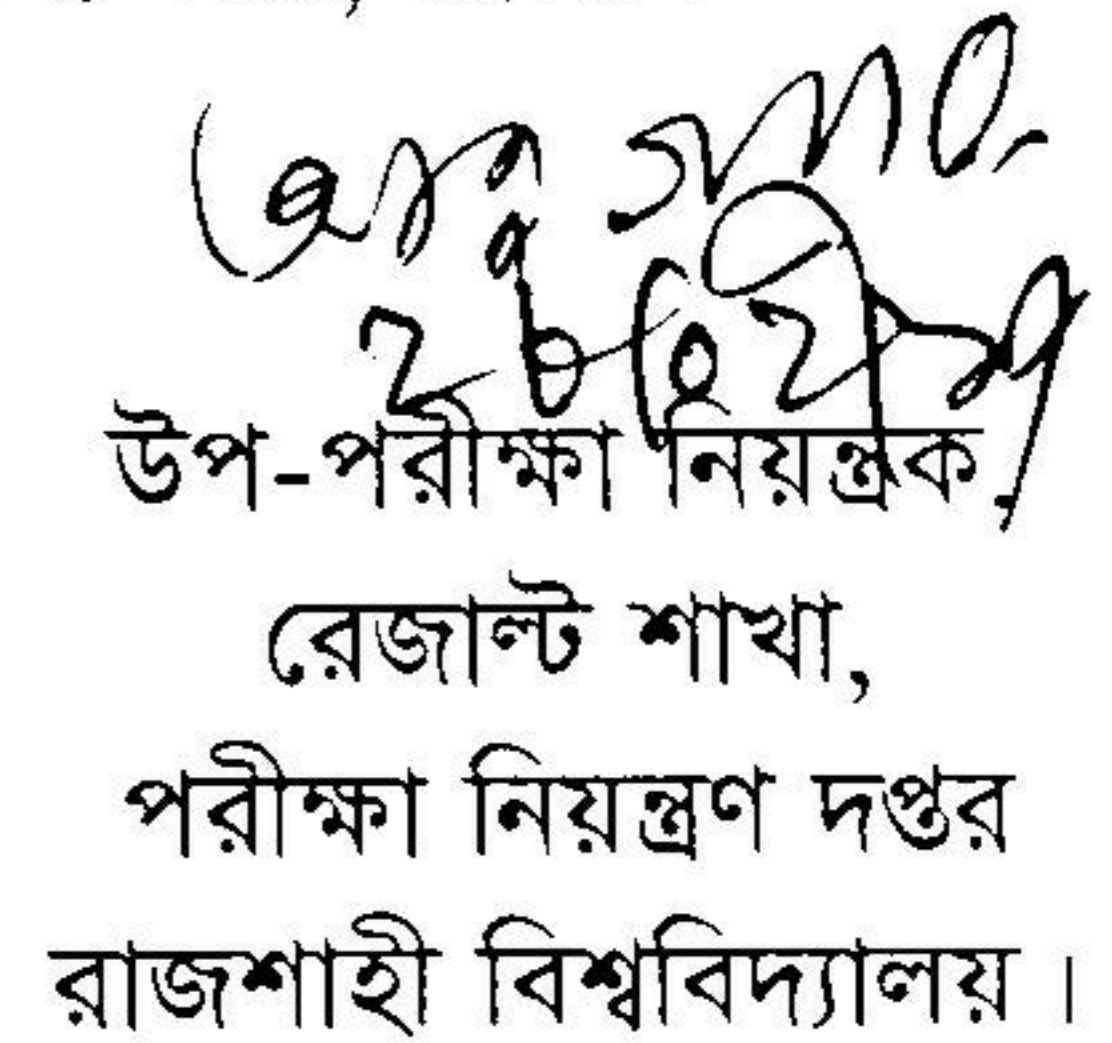 উপ-পরীক্ষা নিয়ন্ত্রক
রেজাল্ট শাখা,
পরীক্ষা নিয়ন্ত্রণ দপ্তর
রাজশাহী বিশ্ববিদ্যালয় ।